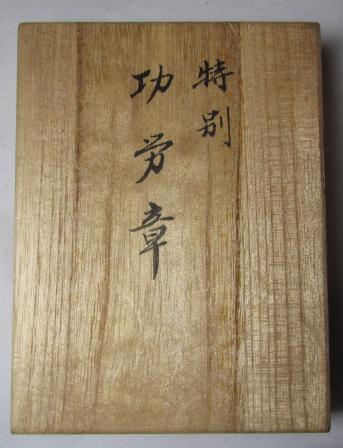 特別
功労章